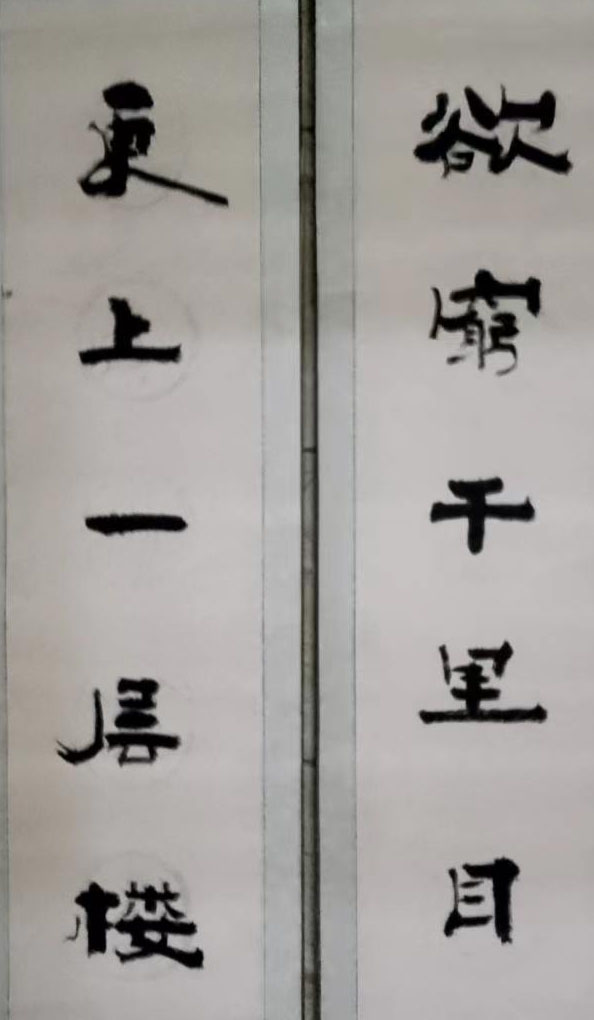 欲窮千里目
更上一层楼